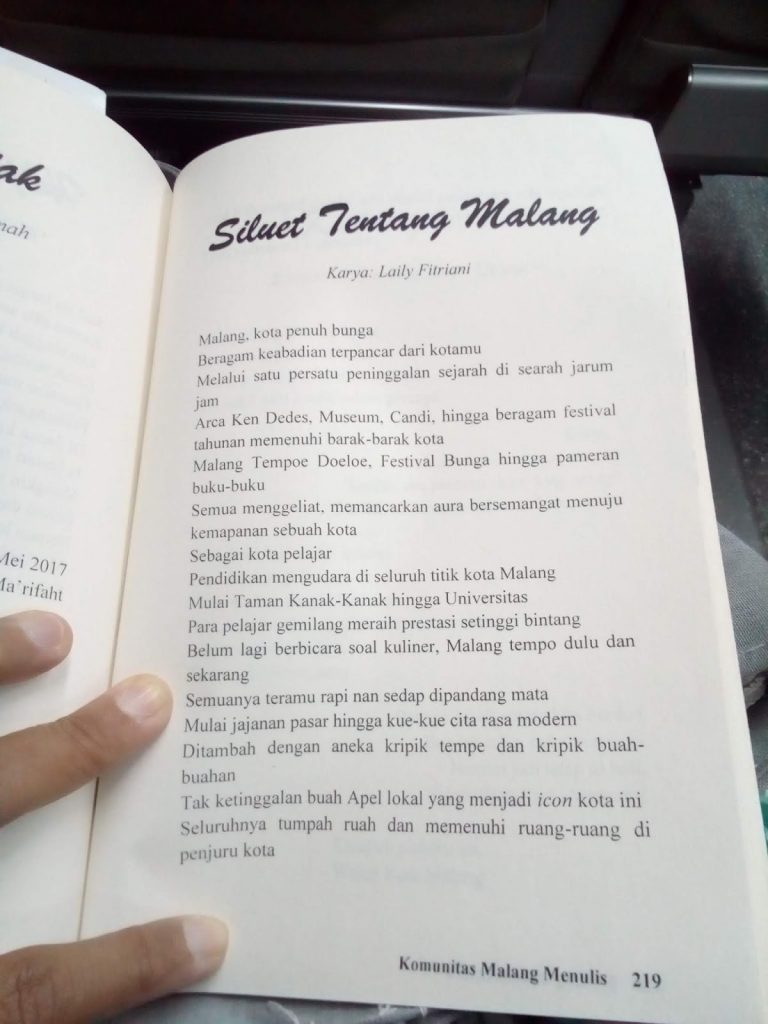 ak
nah
Mei 2017
Ma'rifaht
Siluet Tentang Malang
Karya: Laily Fitriani
Malang, kota penuh bunga
Beragam keabadian terpancar dari kotamu
Melalui satu persatu peninggalan sejarah di searah jarum
jam
Arca Ken Dedes, Museum, Candi, hingga beragam festival
tahunan memenuhi barak-barak kota
Malang Tempoe Doeloe, Festival Bunga hingga pameran
buku-buku
Semua menggeliat, memancarkan aura bersemangat menuju
kemapanan sebuah kota
Sebagai kota pelajar
Pendidikan mengudara di seluruh titik kota Malang
Mulai Taman Kanak-Kanak hingga Universitas
Para pelajar gemilang meraih prestasi setinggi bintang
Belum lagi berbicara soal kuliner, Malang tempo dulu dan
sekarang
Semuanya teramu rapi nan sedap dipandang mata
Mulai jajanan pasar hingga kue-kue cita rasa modern
Ditambah dengan aneka kripik tempe dan kripik buah-
buahan
Tak ketinggalan buah Apel lokal yang menjadi icon kota ini
Seluruhnya tumpah ruah dan memenuhi ruang-ruang di
penjuru kota
Komunitas Malang Menulis 219